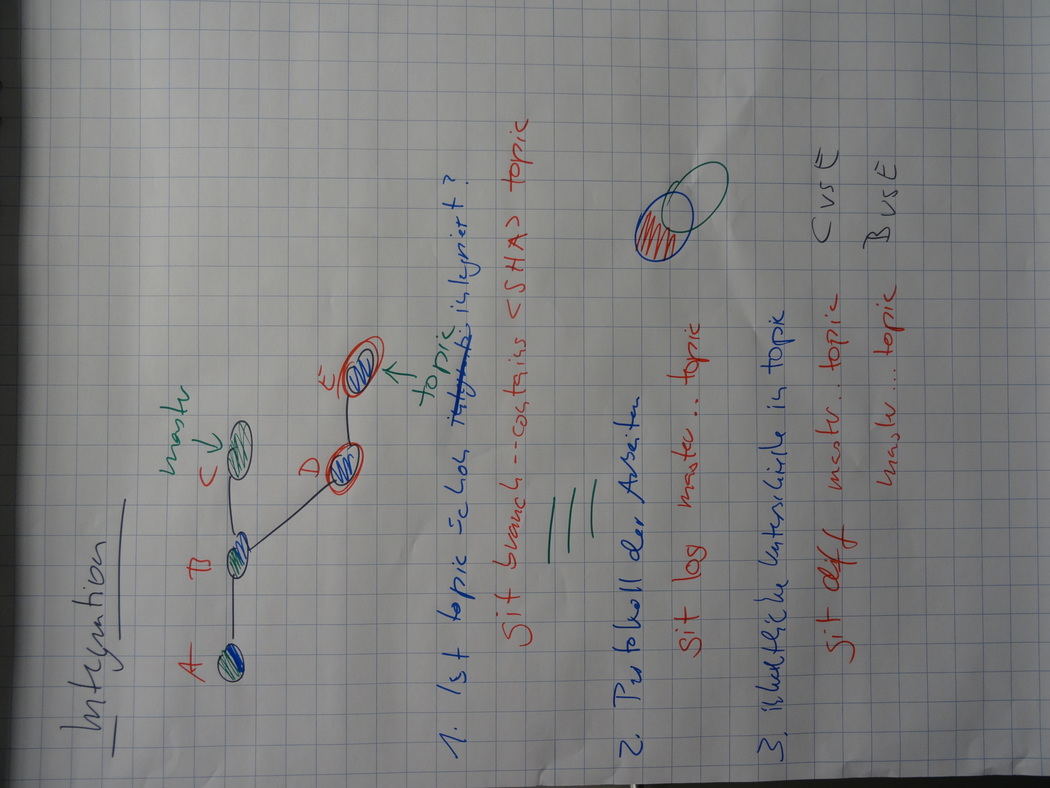 Integration
master
A B C
D E
topic
1. Ist topic schon integriert?
git branch --contains <SHA> topic
2. Protokoll der Arbeiten
git log master .. topic
3. inhaltliche Unterschiede in topic
git diff master .. topic C vs E
master ... topic B vs E